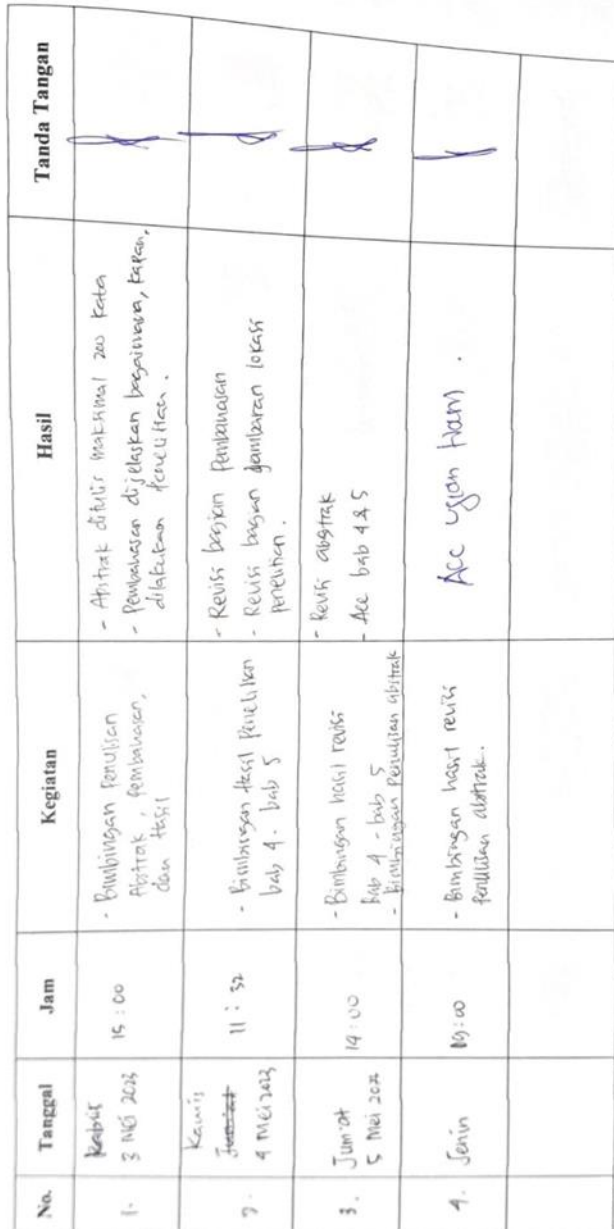 No. Tanggal Jam Kegiatan Hasil Tanda Tangan
1. Rabu
3 Mei 2023
15 : 00
- Bimbingan Penulisan
Abstrak, Pembahasan,
dan Hasil
- Abstrak ditulis maksimal 200 kata
- Pembahasan dijelaskan bagaimana, kapan,
dilakukan penelitian.
2. Kamis
Jum'at
4 Mei 2023
11 : 32
- Bimbingan Hasil Penelitian
bab 4 - bab 5
- Revisi bagian Pembahasan
- Revisi bagian gambaran lokasi
penelitian.
3. Jum'at
5 Mei 2023
14:00
- Bimbingan hasil revisi
bab 4 - bab 5
- Bimbingan Penulisan abstrak
- Revisi abstrak
- Acc bab 4 & 5
4. Senin
09:00
- Bimbingan hasil revisi
Penulisan abstrak.
Acc ujian